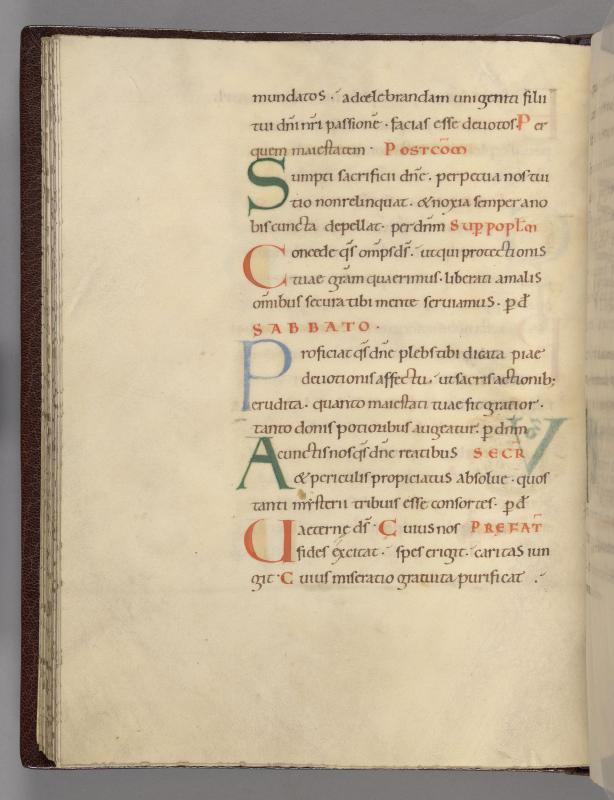 mundatos · ad celebrandam unigeniti filii
tui dñi nr̄i passionē · facias esse deuotos · Per
quem maiestatem · POSTCOM̄
Sumpti sacrificii dñe · perpetua nos tui
tio non relinquat · & noxia semper a no
bis cuncta depellat · per dnm̄ SUP POPLM̄
Concede qs̄ om̄ps d̄s · ut qui protectionis
tuae grām quaerimus · liberati a malis
om̄ibus secura tibi mente seruiamus · p̄ d̄
SABBATO ·
Proficiat qs̄ dñe plebs tibi dicata piae
deuotionis affectu · ut sacris actionib;
erudita · quanto maiestati tuae fit gratior ·
tanto donis potioribus augeatur · p̄ dnm̄
A cunctis nos qs̄ dñe reatibus SECR̄
& periculis propiciatus absolue · quos
tanti mysterii tribuis esse consortes · p̄ d̄
UD aeternę d̄s · Cuius nos PREFAT̄
fides excitat · spes erigit · caritas iun
git · Cuius miseratio gratuita purificat ·